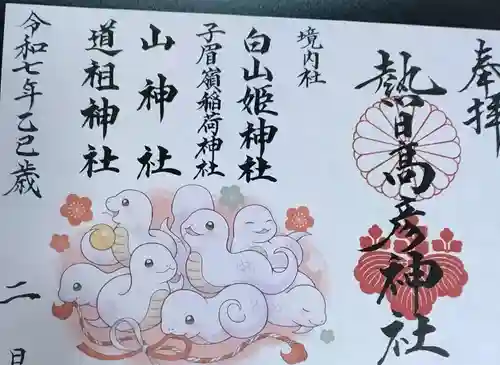 奉拝
熱日高彦神社
境内社
白山姫神社
子眉嶺稲荷神社
山神社
道祖神社
令和七年乙巳歳
二
月